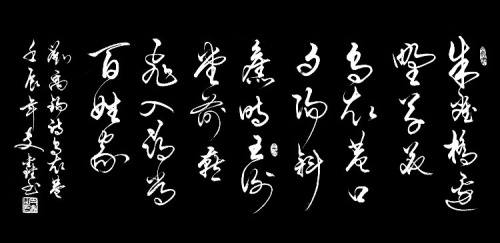 朱雀橋邊
野草花
烏衣巷口
夕陽斜
舊時王謝
堂前燕
飛入尋常
百姓家
劉禹錫詩烏衣巷
壬辰年書